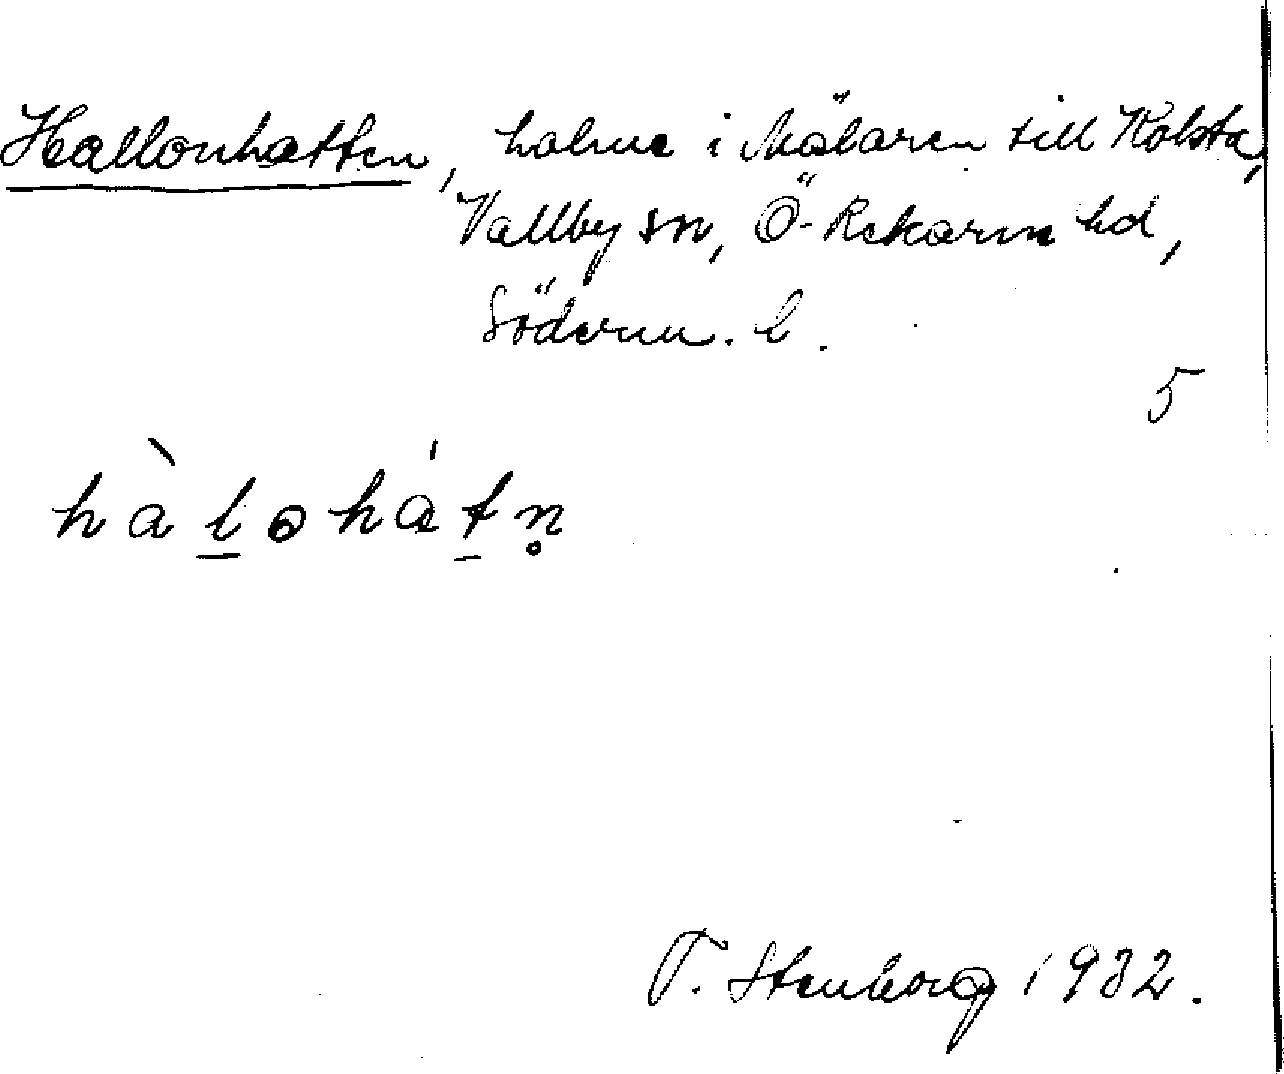 Hallonhatten, holme i Mälaren till Kolsta,
Vallby sn, Ö-Rekarne hd,
Söderm. l.
5
hàl̲ohát̲n̥
T. Stenborg 1932.